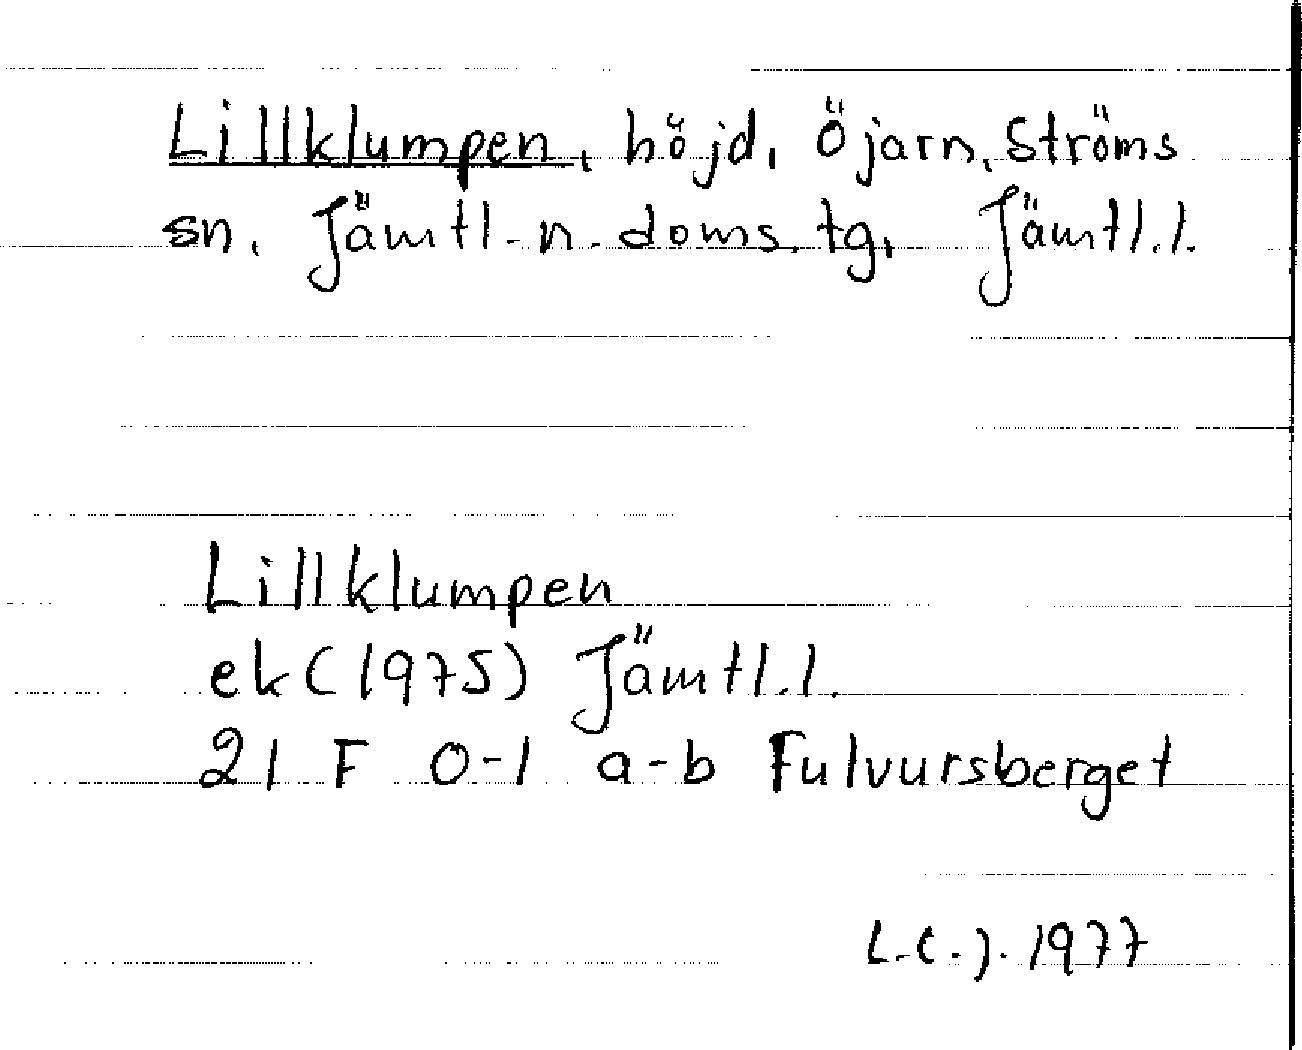 Lillklumpen, höjd, Öjarn, Ströms
sn, Jämtl. n. doms. tg, Jämtl. l.
Lillklumpen
ek (1975) Jämtl. l.
21 F 0-1 a-b Fulvursberget
L.C.J. 1977